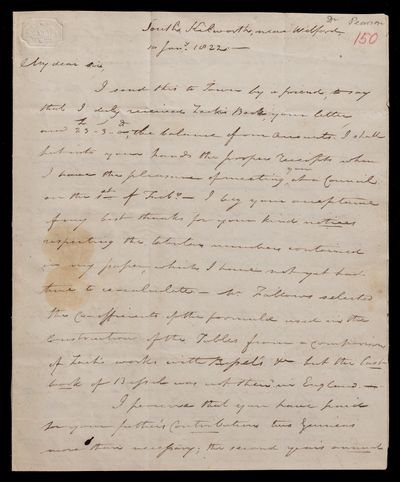 Dr Pearson
150
South Kilworth, near Welford
10 Jany. 1822.—
My dear Sir,
I send this to Town by a friend, to say
that I duly received Zach's Book, your letter
and £23-3-, the balance of our Accounts. I shall
put into your hands the proper receipts when
I have the pleasure of meeting you at a Council
on the 1st of Feby. — I beg your acceptance
of my best thanks for your kind notices
respecting the tabular numbers contained
in my paper, which I have not yet had
time to recalculate — Mr Fallows selected
the Coefficients of the formulæ used in the
Construction of the Tables from a comparison
of Zach's works with Bessel's &c but the last
book of Bessel was not then in England. —
I perceive that you have paid
for your father's Contributions two Guineas
more than necessary; the second year's annual